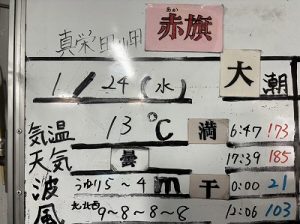 あか
真栄田岬 赤旗
1/24(水) 大潮
気温 13℃ 満 6:47 173
天気 曇 17:39 185
波 うねり1.5~4m 干 0:00 21
風 北北西 9~8-8-8 12:06 103